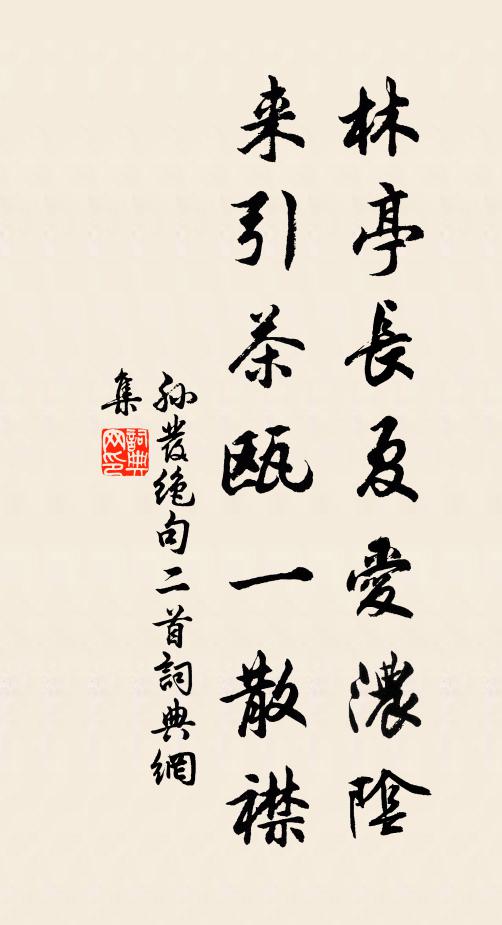 林亭長夏愛濃陰
来引茶甌一散襟
孙發绝句二首詞典網
集
詞典
网印